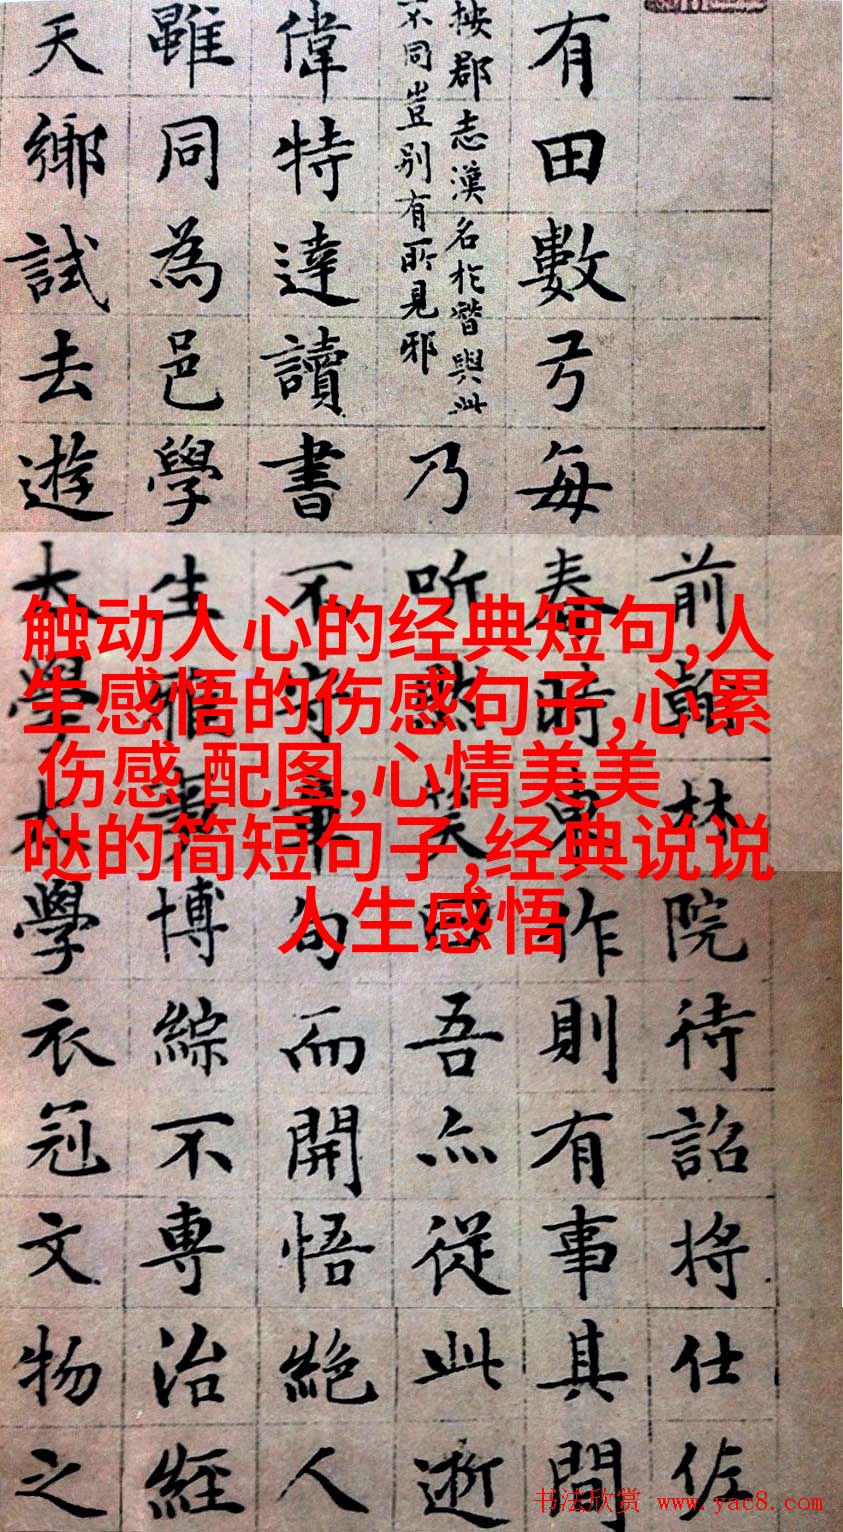 前翰林院待詔将仕佐
有田數丂每春時東作則有事其間
按郡志漢名於與此
不同豈别有所見邪
乃听然笑曰吾亦從此逝
偉特達讀書不守章句而開悟絕人
雖同為邑學生惟博綜不專治經
天鄉試去遊太學太學衣冠文物之
触动人心的经典短句,人
生感悟的伤感句子,心累
伤感 配图,心情美美
哒的简短句子,经典说说
人生感悟
书法欣赏 www.yac8.com